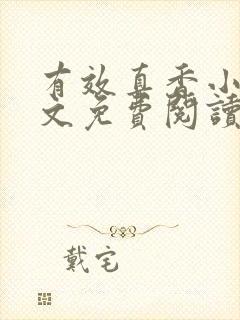 有效真香小
文免費閱讀
戴宅